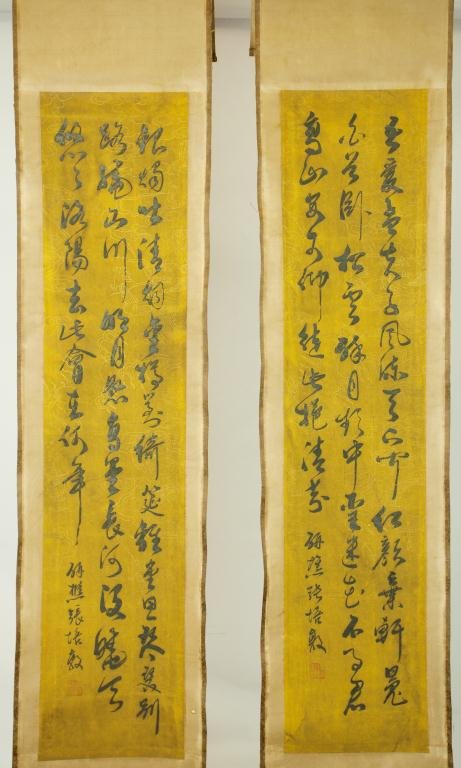 吾愛孟夫子風流天下聞紅顏棄軒冕
白首臥松雲醉月頻中聖迷花不事君
高山安可仰徒此挹清芬 研樵張培敦
銀燭吐清煙金樽對綺筵離堂思琴瑟別
路繞山川明月懸高樹長河沒曉天
悠悠洛陽去此會在何年 研樵張培敦